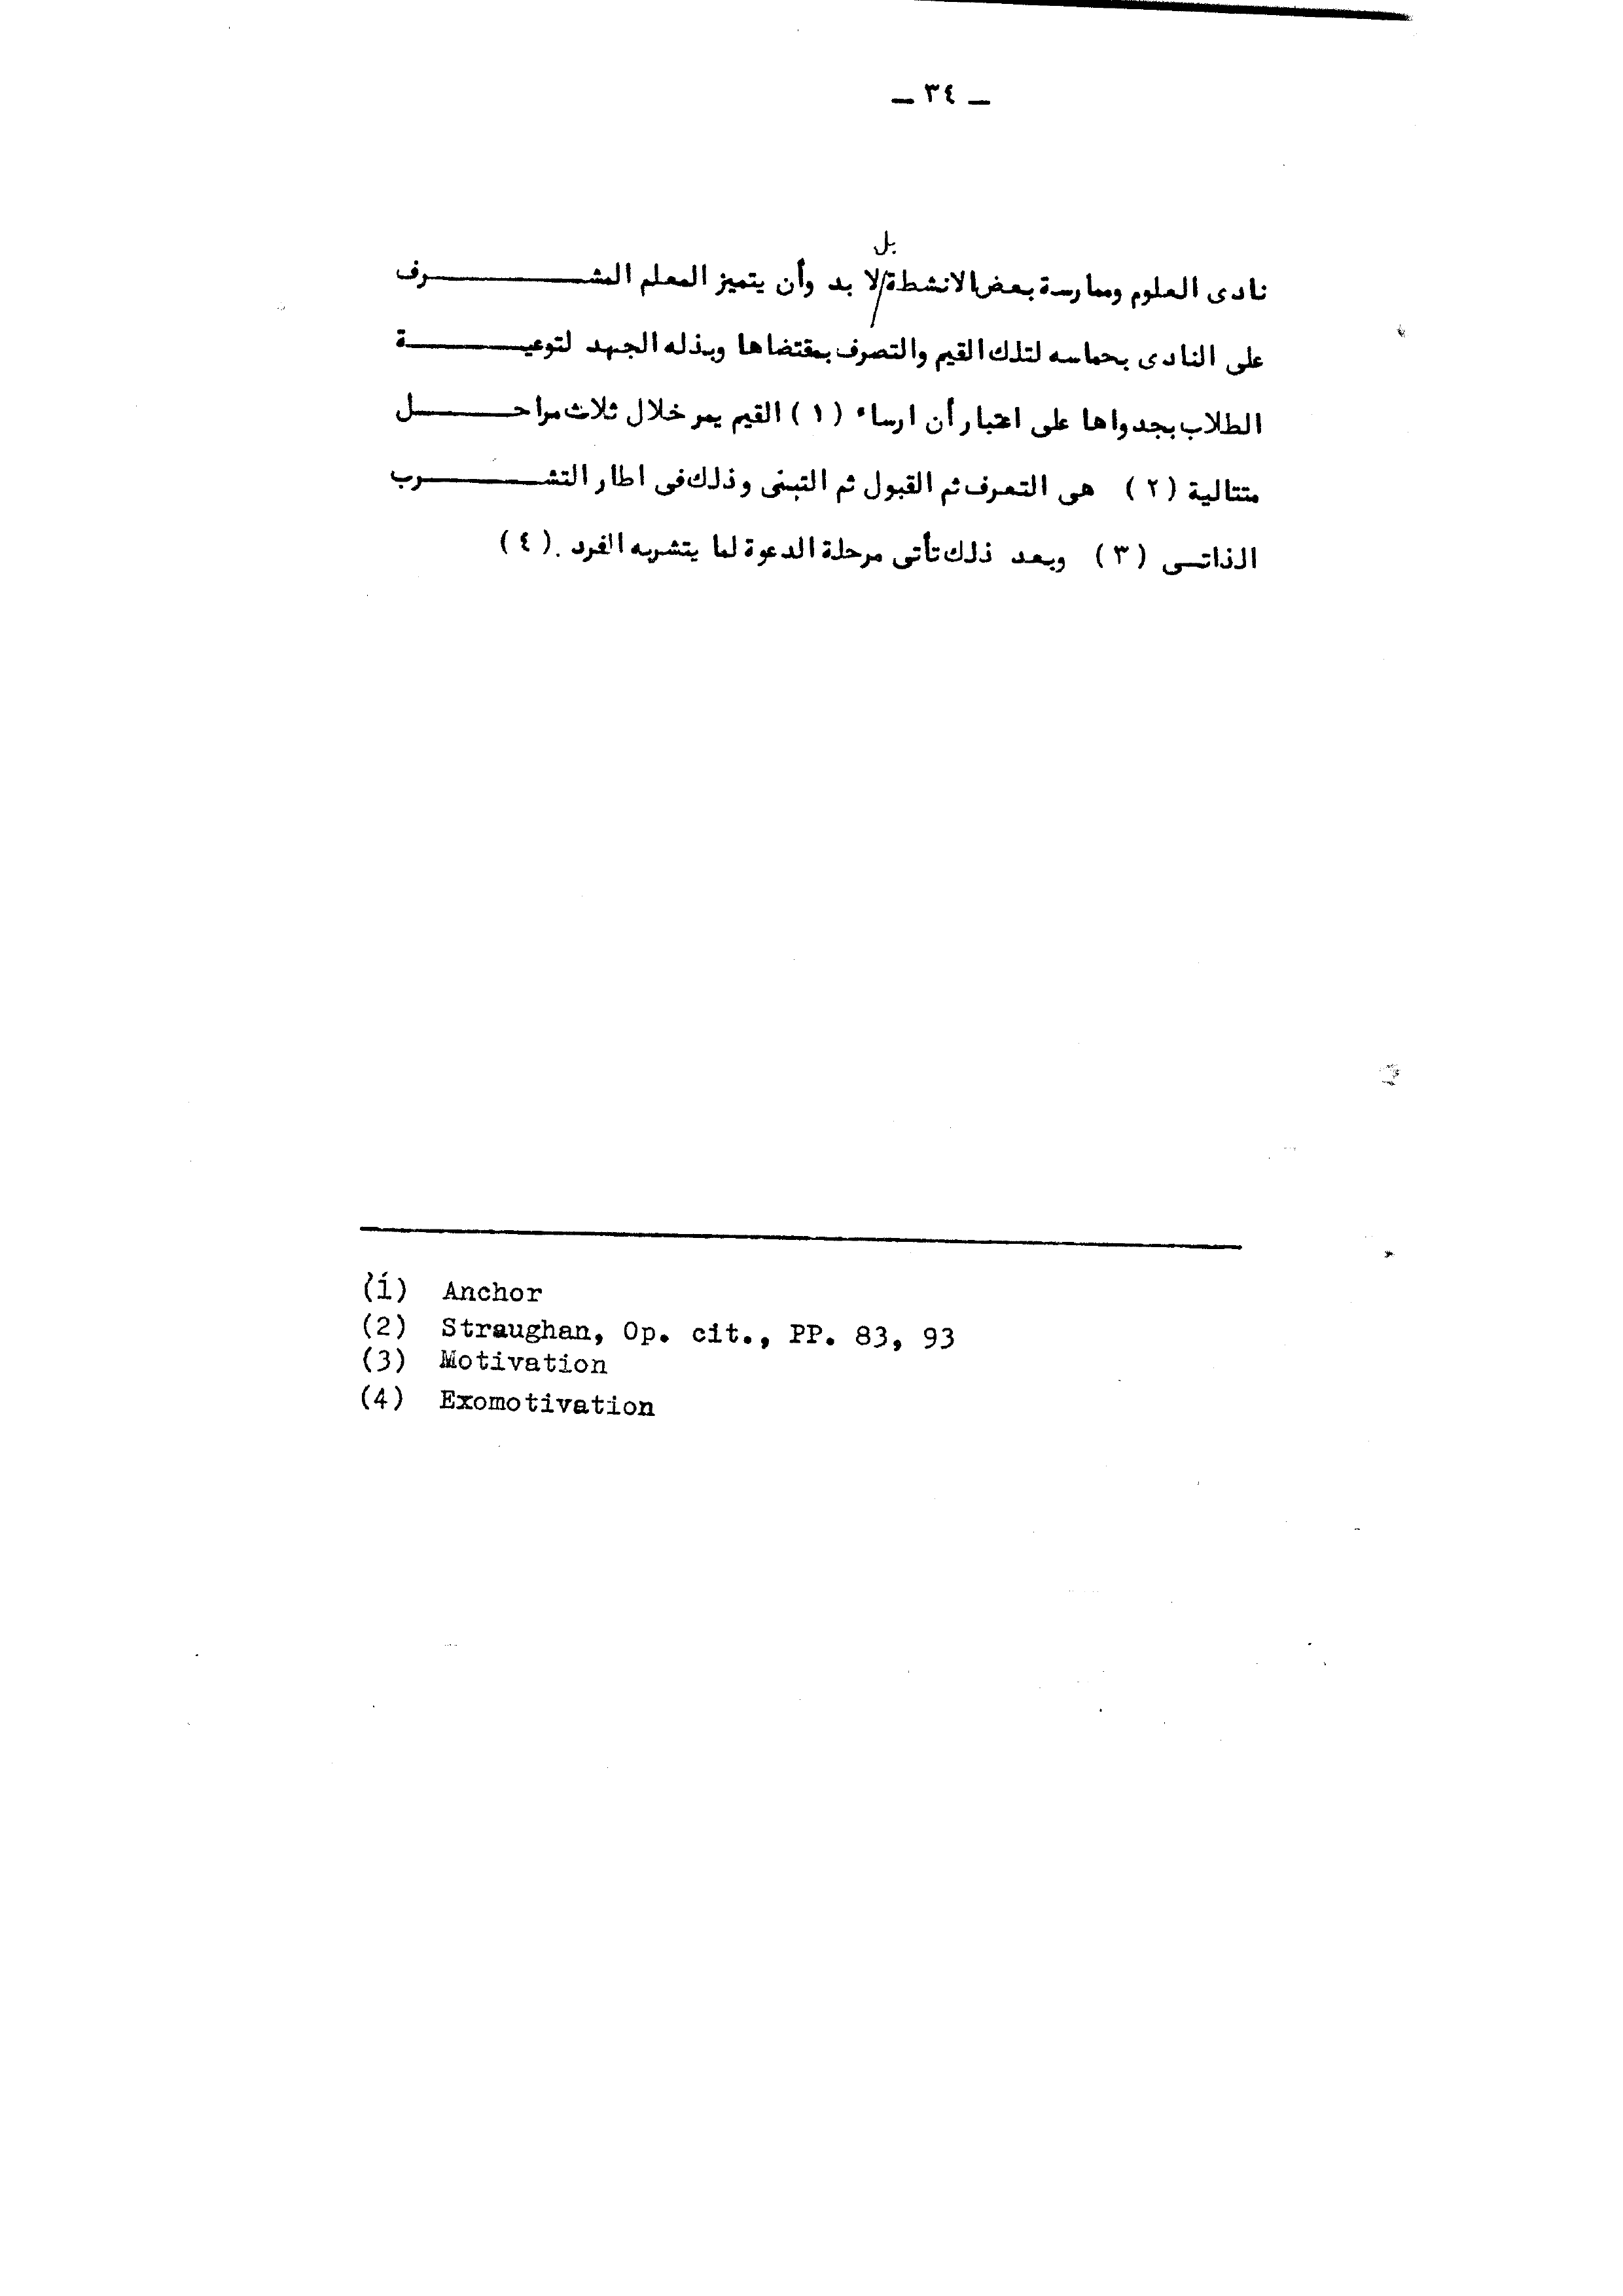 — ٣٤ —
بل
نادى العلوم وممارسة بعض الانشطة/لا بد وأن يتميز المعلم المشـــــرف
على النادى بحماسه لتلك القيم والتصرف بمقتضاها وبذله الجهد لتوعيـــــة
الطلاب بجدواها على اعتبار أن ارساء (١) القيم يمر خلال ثلاث مراحـــــل
متتالية (٢) هى التعرف ثم القبول ثم التبنى وذلك فى اطار التشـــــرب
الذاتـى (٣) وبعد ذلك تأتى مرحلة الدعوة لما يتشربه الفرد .(٤)
(1) Anchor
(2) Straughan, Op. cit., PP. 83, 93
(3) Motivation
(4) Exomotivation